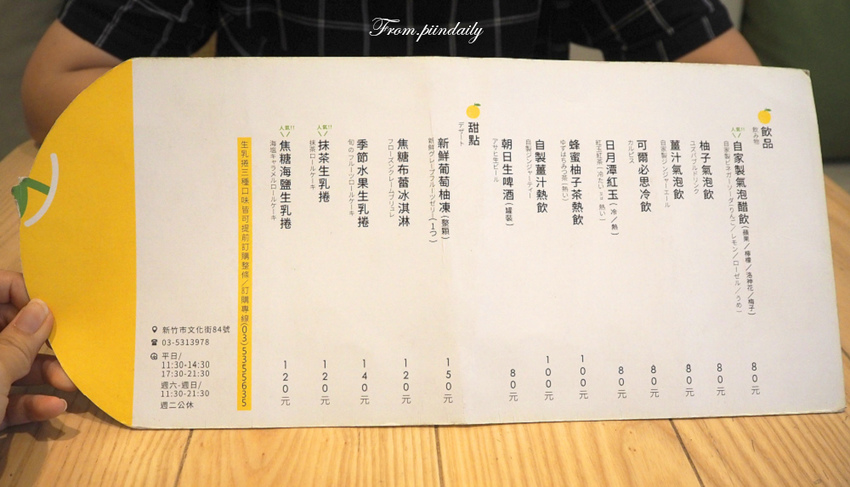 From.piindaily
飲品
飲み物
人氣!!
自家製氣泡醋飲(蘋果/檸檬/洛神花/梅子)
80元
柚子氣泡飲
ユズバブルドリンク
80元
薑汁氣泡飲
自家製ジンジャーエール
80元
可爾必思冷飲
カルピス
80元
日月潭紅玉(冷/熱)
80元
蜂蜜柚子茶熱飲
ゆずはちみつ茶(熱い)
100元
自製薑汁熱飲
自製ジンジャーティー
100元
朝日生啤酒(罐裝)
アサヒ生ビール
80元
甜點
デザート
新鮮葡萄柚凍(整顆)
新鮮グレープフルーツゼリー(1つ)
150元
焦糖布蕾冰淇淋
フローズンクレームブリュレ
120元
季節水果生乳捲
旬のフルーツロールケーキ
140元
人氣!!
抹茶生乳捲
抹茶ロールケーキ
120元
人氣!!
焦糖海鹽生乳捲
海塩キャラメルロールケーキ
120元
生乳捲三種口味皆可提前訂購整條/訂購專線(03)53552635
新竹市文化街84號
03-5313978
平日/
11:30-14:30
17:30-21:30
週六-週日/
11:30-21:30
週二公休